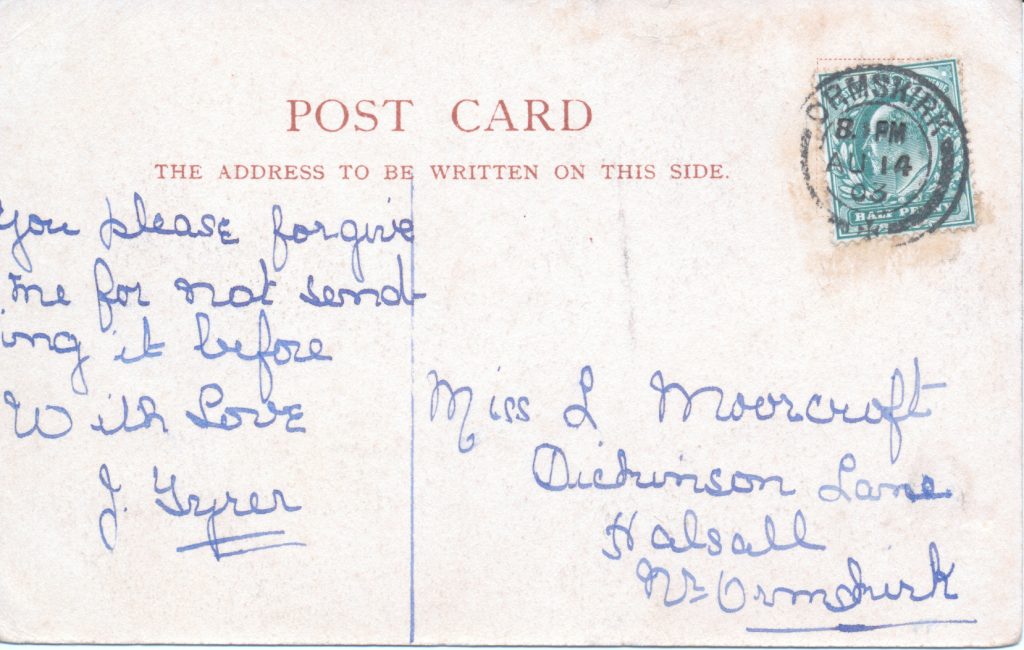 POST CARD
THE ADDRESS TO BE WRITTEN ON THIS SIDE.
ORMSKIRK
8 PM
AU 14
03
HALF PENNY
you please forgive
me for not send-
ing it before
With Love
J.
Miss L Moorcroft
Dickinson Lane
Halsall
Nr Ormskirk